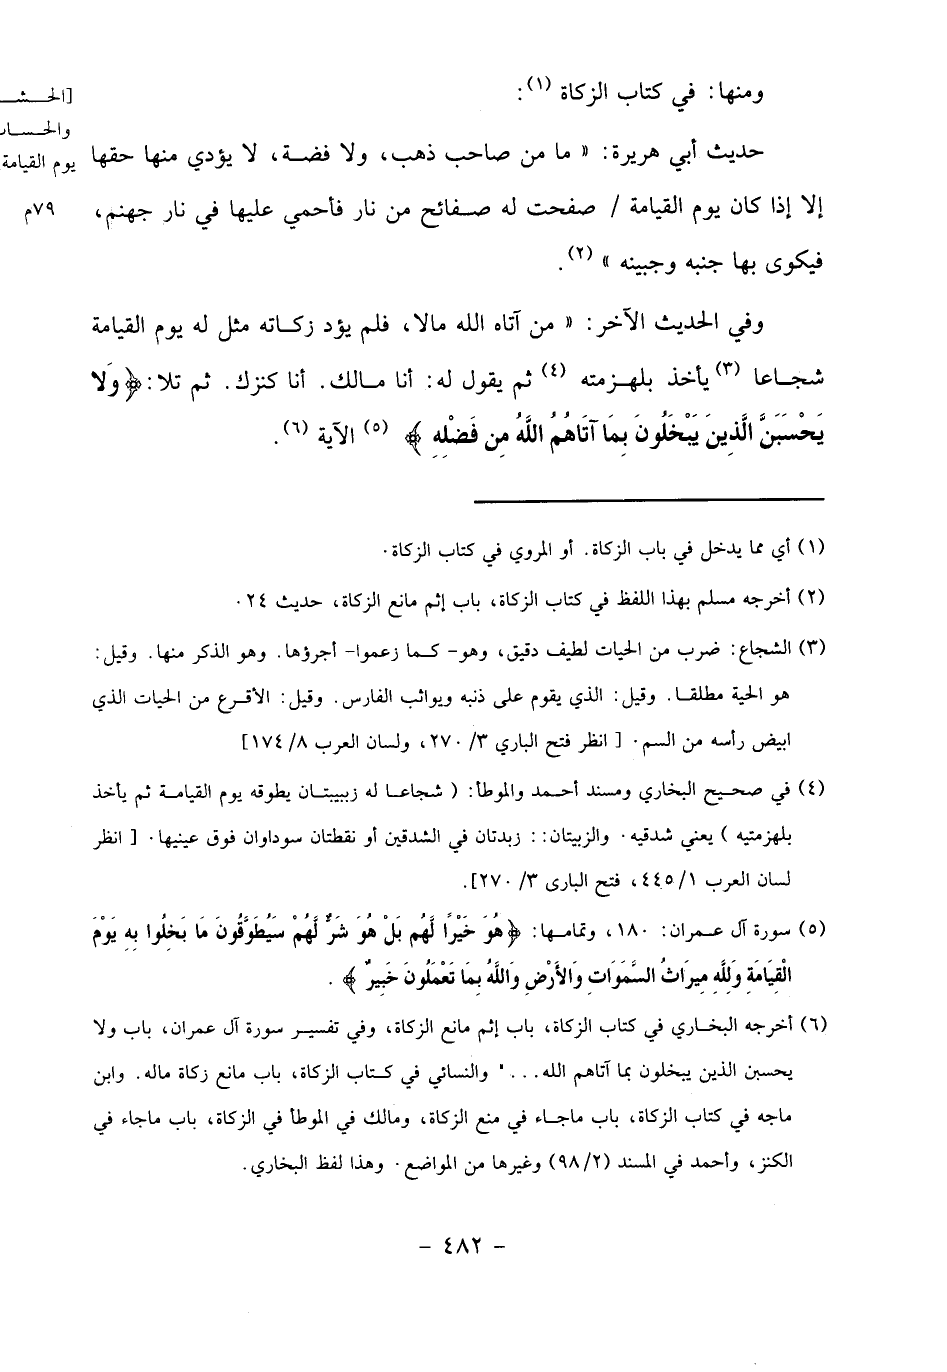 ومنها: في كتاب الزكاة (١):
[الحـــشـ
والحـــسا
يوم القيامة
حديث أبي هريرة: « ما من صاحب ذهب، ولا فضة، لا يؤدي منها حقها
إلا إذا كان يوم القيامة / صفحت له صفائح من نار فأحمي عليها في نار جهنم،
٧٩م
فيكوى بها جنبه وجبينه » (٢).
وفي الحديث الآخر: « من آتاه الله مالا، فلم يؤد زكاته مثل له يوم القيامة
شجاعا (٣) يأخذ بلهزمته (٤) ثم يقول له: أنا مالك. أنا كنزك. ثم تلا: ﴿ وَلا
يَحْسَبَنَّ الَّذِينَ يَبْخَلُونَ بِمَا آتَاهُمُ اللَّهُ مِن فَضْلِهِ ﴾ (٥) الآية (٦).
(١) أي مما يدخل في باب الزكاة. أو المروي في كتاب الزكاة.
(٢) أخرجه مسلم بهذا اللفظ في كتاب الزكاة، باب إثم مانع الزكاة، حديث ٢٤.
(٣) الشجاع: ضرب من الحيات لطيف دقيق، وهو- كما زعموا- أجرؤها. وهو الذكر منها. وقيل:
هو الحية مطلقا. وقيل: الذي يقوم على ذنبه ويواثب الفارس. وقيل: الأقرع من الحيات الذي
ابيض رأسه من السم. [ انظر فتح الباري ٣/ ٢٧٠، ولسان العرب ٨/ ١٧٤]
(٤) في صحيح البخاري ومسند أحمد والموطأ: ( شجاعا له زبيبتان يطوقه يوم القيامة ثم يأخذ
بلهزمتيه ) يعني شدقيه. والزبيتان:: زبدتان في الشدقين أو نقطتان سوداوان فوق عينيها. [ انظر
لسان العرب ١/ ٤٤٥، فتح البارى ٣/ ٢٧٠].
(٥) سورة آل عمران: ١٨٠، وتمامها: ﴿ هُوَ خَيْرًا لَّهُم بَلْ هُوَ شَرٌّ لَّهُمْ سَيُطَوَّقُونَ مَا بَخِلُوا بِهِ يَوْمَ
الْقِيَامَةِ وَلِلَّهِ مِيرَاثُ السَّمَوَاتِ وَالأَرْضِ وَاللَّهُ بِمَا تَعْمَلُونَ خَبِيرٌ ﴾ .
(٦) أخرجه البخاري في كتاب الزكاة، باب إثم مانع الزكاة، وفي تفسير سورة آل عمران، باب ولا
يحسبن الذين يبخلون بما آتاهم الله... " والنسائي في كتاب الزكاة، باب مانع زكاة ماله. وابن
ماجه في كتاب الزكاة، باب ماجاء في منع الزكاة، ومالك في الموطأ في الزكاة، باب ماجاء في
الكنز، وأحمد في المسند (٢/ ٩٨) وغيرها من المواضع. وهذا لفظ البخاري.
- ٤٨٢ -